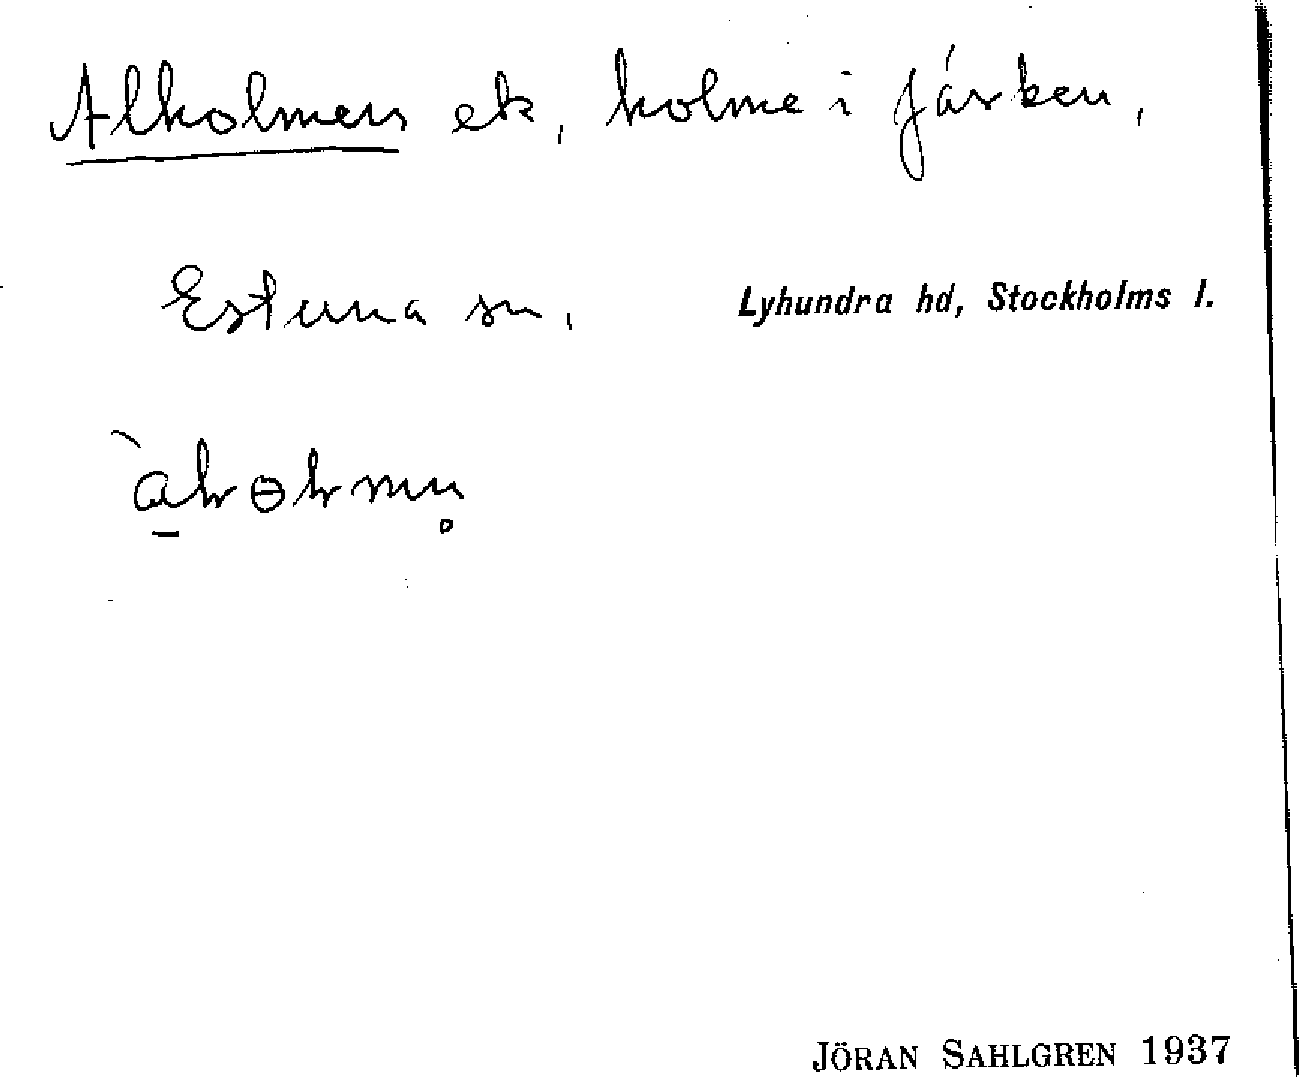 Alholmen ek, holme i Järken,
Estuna sn, Lyhundra hd, Stockholms l.
JÖRAN SAHLGREN 1937